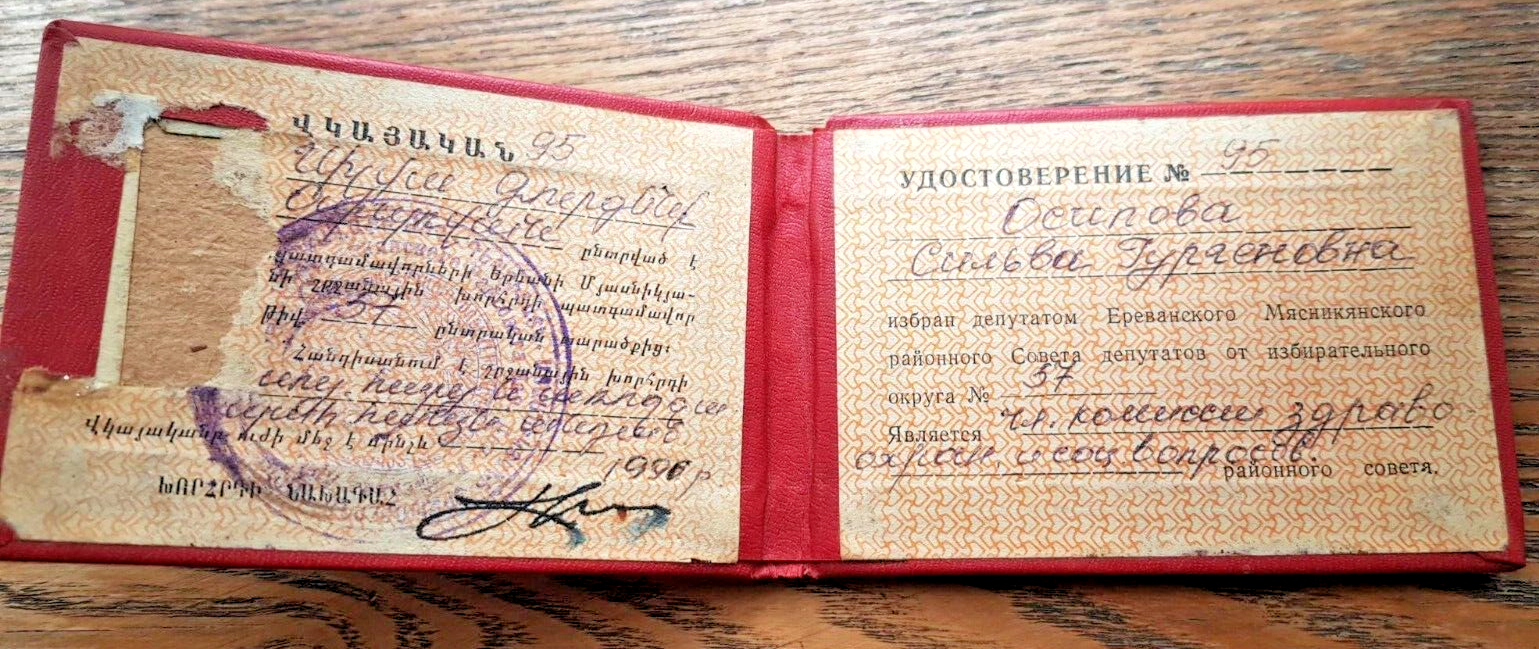 ՎԿԱՅԱԿԱՆ 95
Սիլվա Գուրգենի
Օսիպովան
ընտրված է
պատգամավորների Երևանի Մյասնիկյա-
նի շրջանային խորհրդի պատգամավոր
թիվ 57 ընտրական տարածքից։
Հանդիսանում է շրջանային խորհրդի
Վկայականը ուժի մեջ է մինչև
1990 թ
ԽՈՐՀՐԴԻ ՆԱԽԱԳԱՀ
УДОСТОВЕРЕНИЕ № 95
Осипова
Сильва Гургеновна
избран депутатом Ереванского Мясникянского
районного Совета депутатов от избирательного
округа № 57
Является чл. комиссии здраво-
охран. и соц вопросов. районного совета.